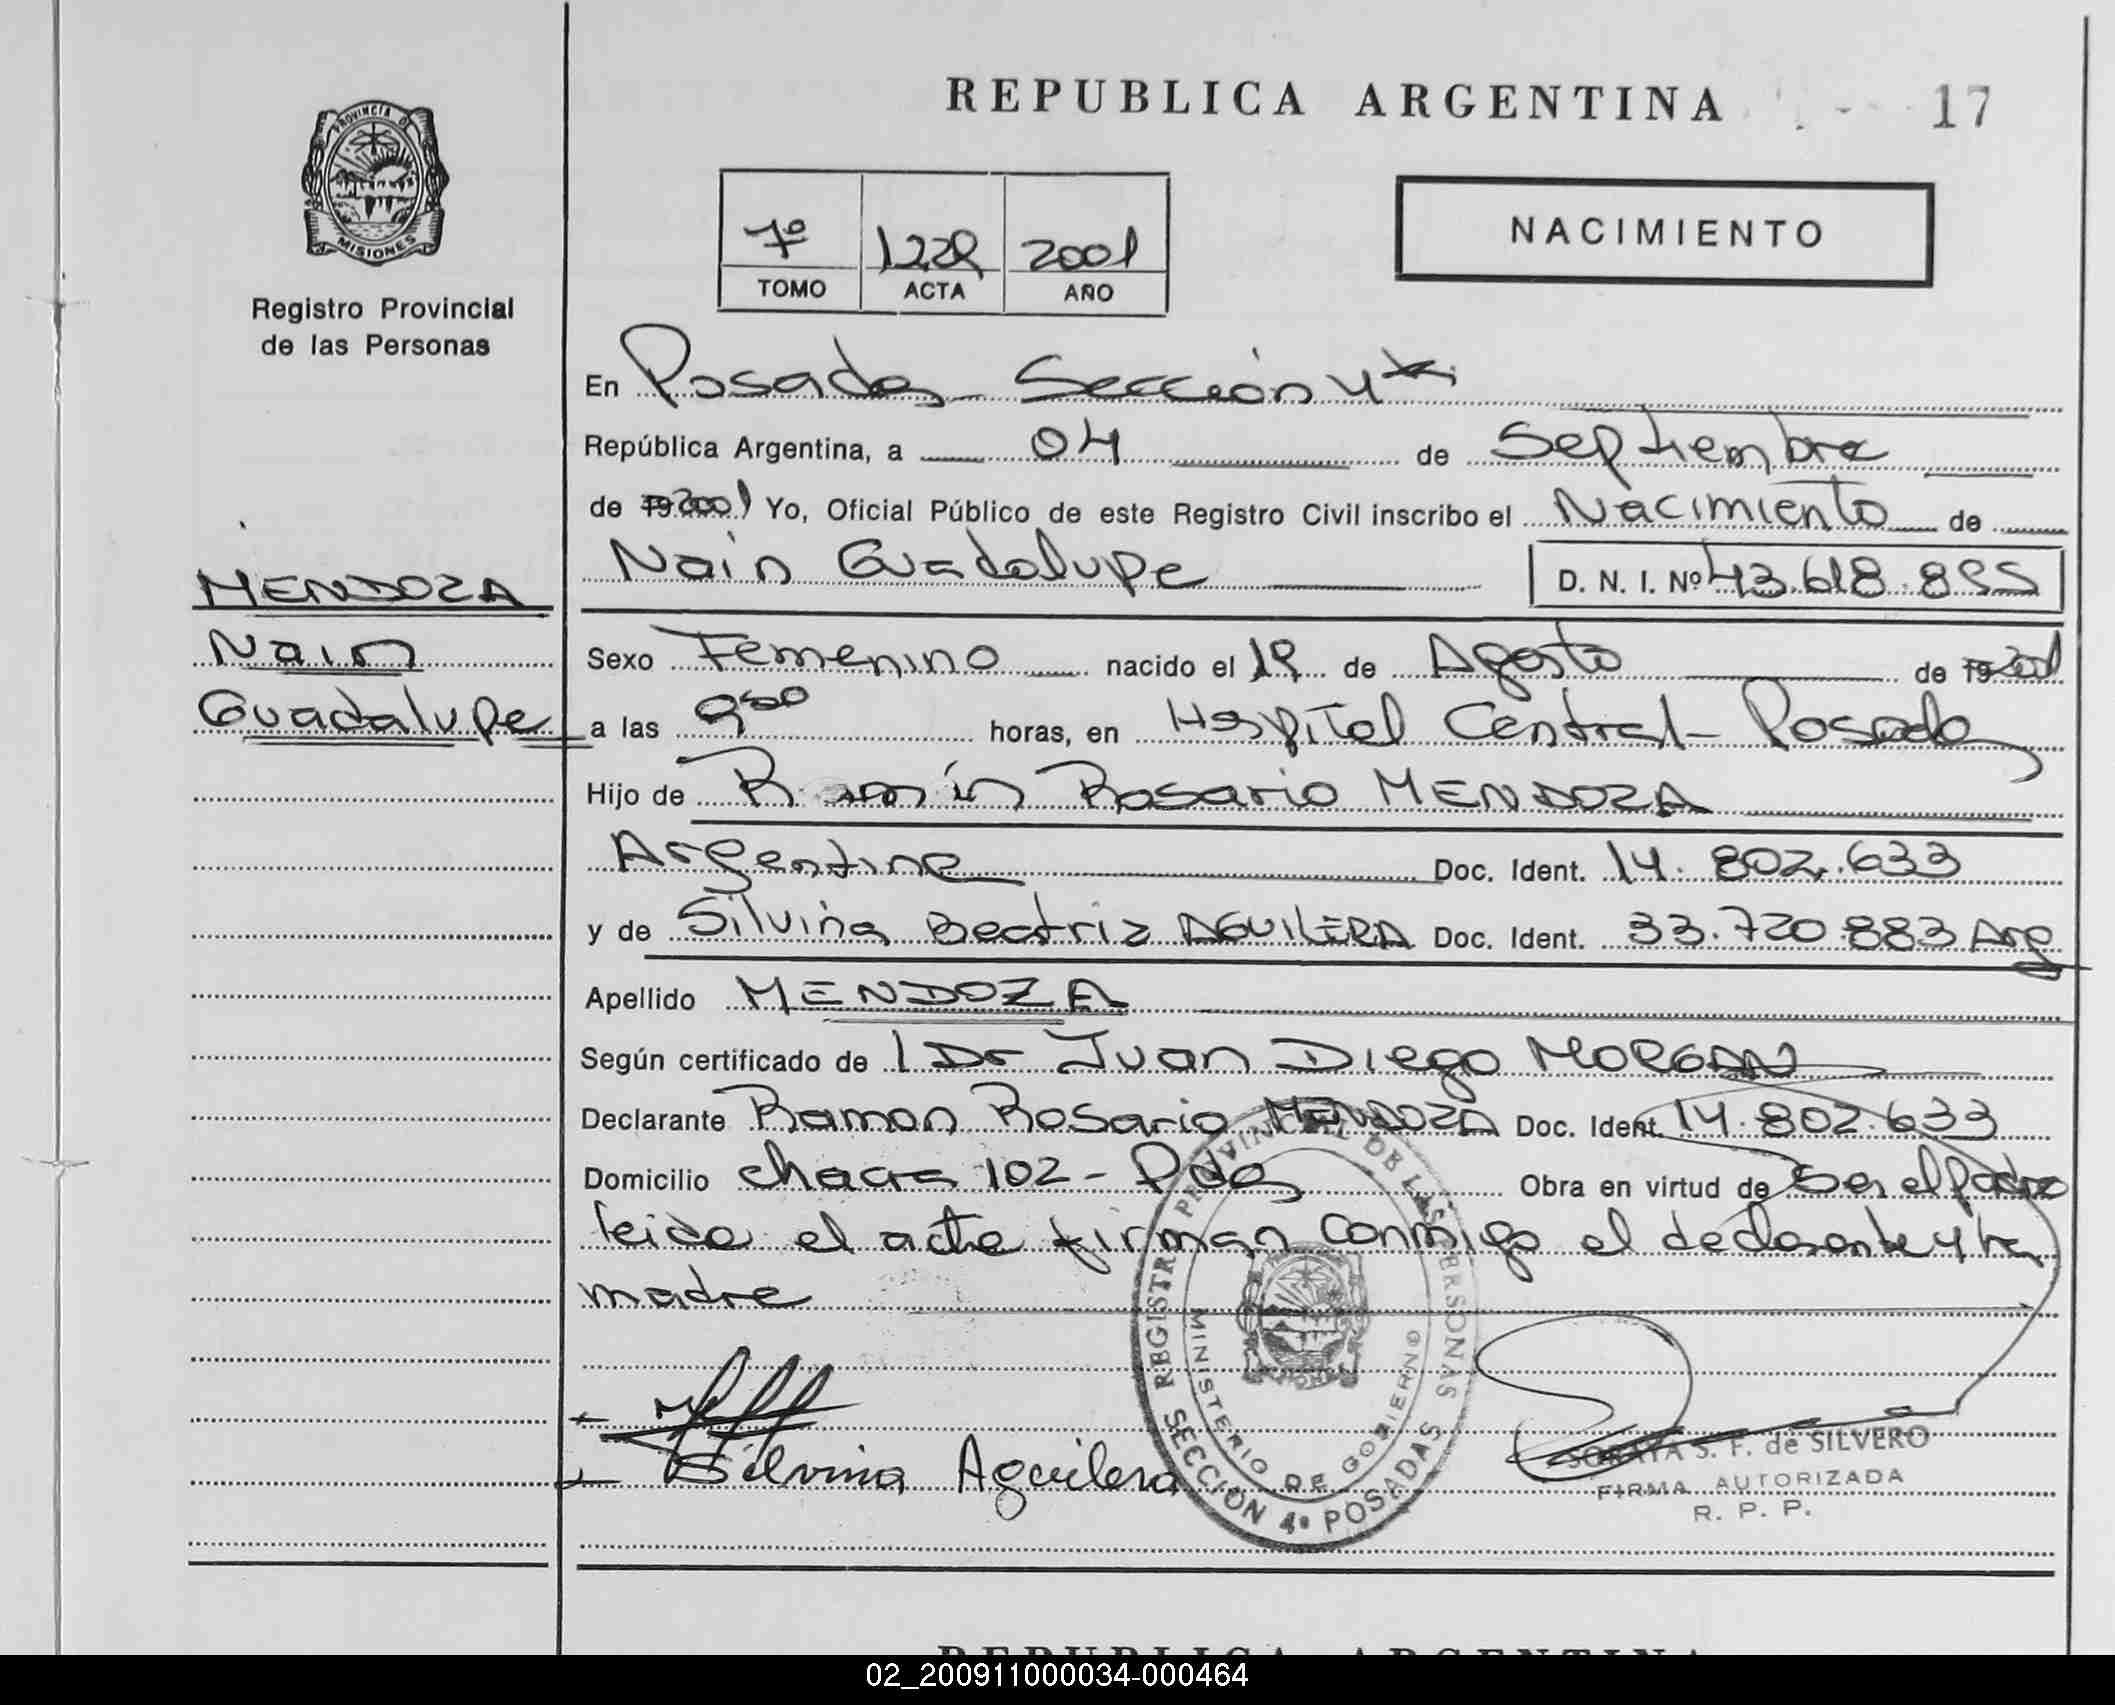 REPUBLICA ARGENTINA
17
PROVINCIA DE
MISIONES
Registro Provincial
de las Personas
7º 2001
TOMO ACTA AÑO
NACIMIENTO
En Posadas Sección 4ta.
República Argentina, a 04 de Septiembre
de 19 2001 Yo, Oficial Público de este Registro Civil inscribo el Nacimiento de
Nain Guadalupe D. N. I. Nº 43.618.855
MENDOZA
Nain
Guadalupe
Sexo Femenino nacido el 19 de Agosto de 19 2001
a las horas, en Hospital Central - Posadas
Hijo de Ramón Rosario MENDOZA
Argentino Doc. Ident. 14.802.633
y de Silvina Beatriz AGUILERA Doc. Ident. 33.720.883 Arg
Apellido MENDOZA
Según certificado de l Dr Juan Diego MORGAN
Declarante Ramon Rosario MENDOZA Doc. Ident. 14.802.633
Domicilio chacra 102 - Pdas Obra en virtud de Ser el padre
leida el acta firman conmigo el declarante y la
madre
REGISTRO PROVINCIAL DE LAS PERSONAS
MINISTERIO DE GOBIERNO
SECCION 4ª POSADAS
Silvina Aguilera
SORAYA S. F. de SILVERO
FIRMA AUTORIZADA
R. P. P.
REPUBLICA ARGENTINA
02_200911000034-000464